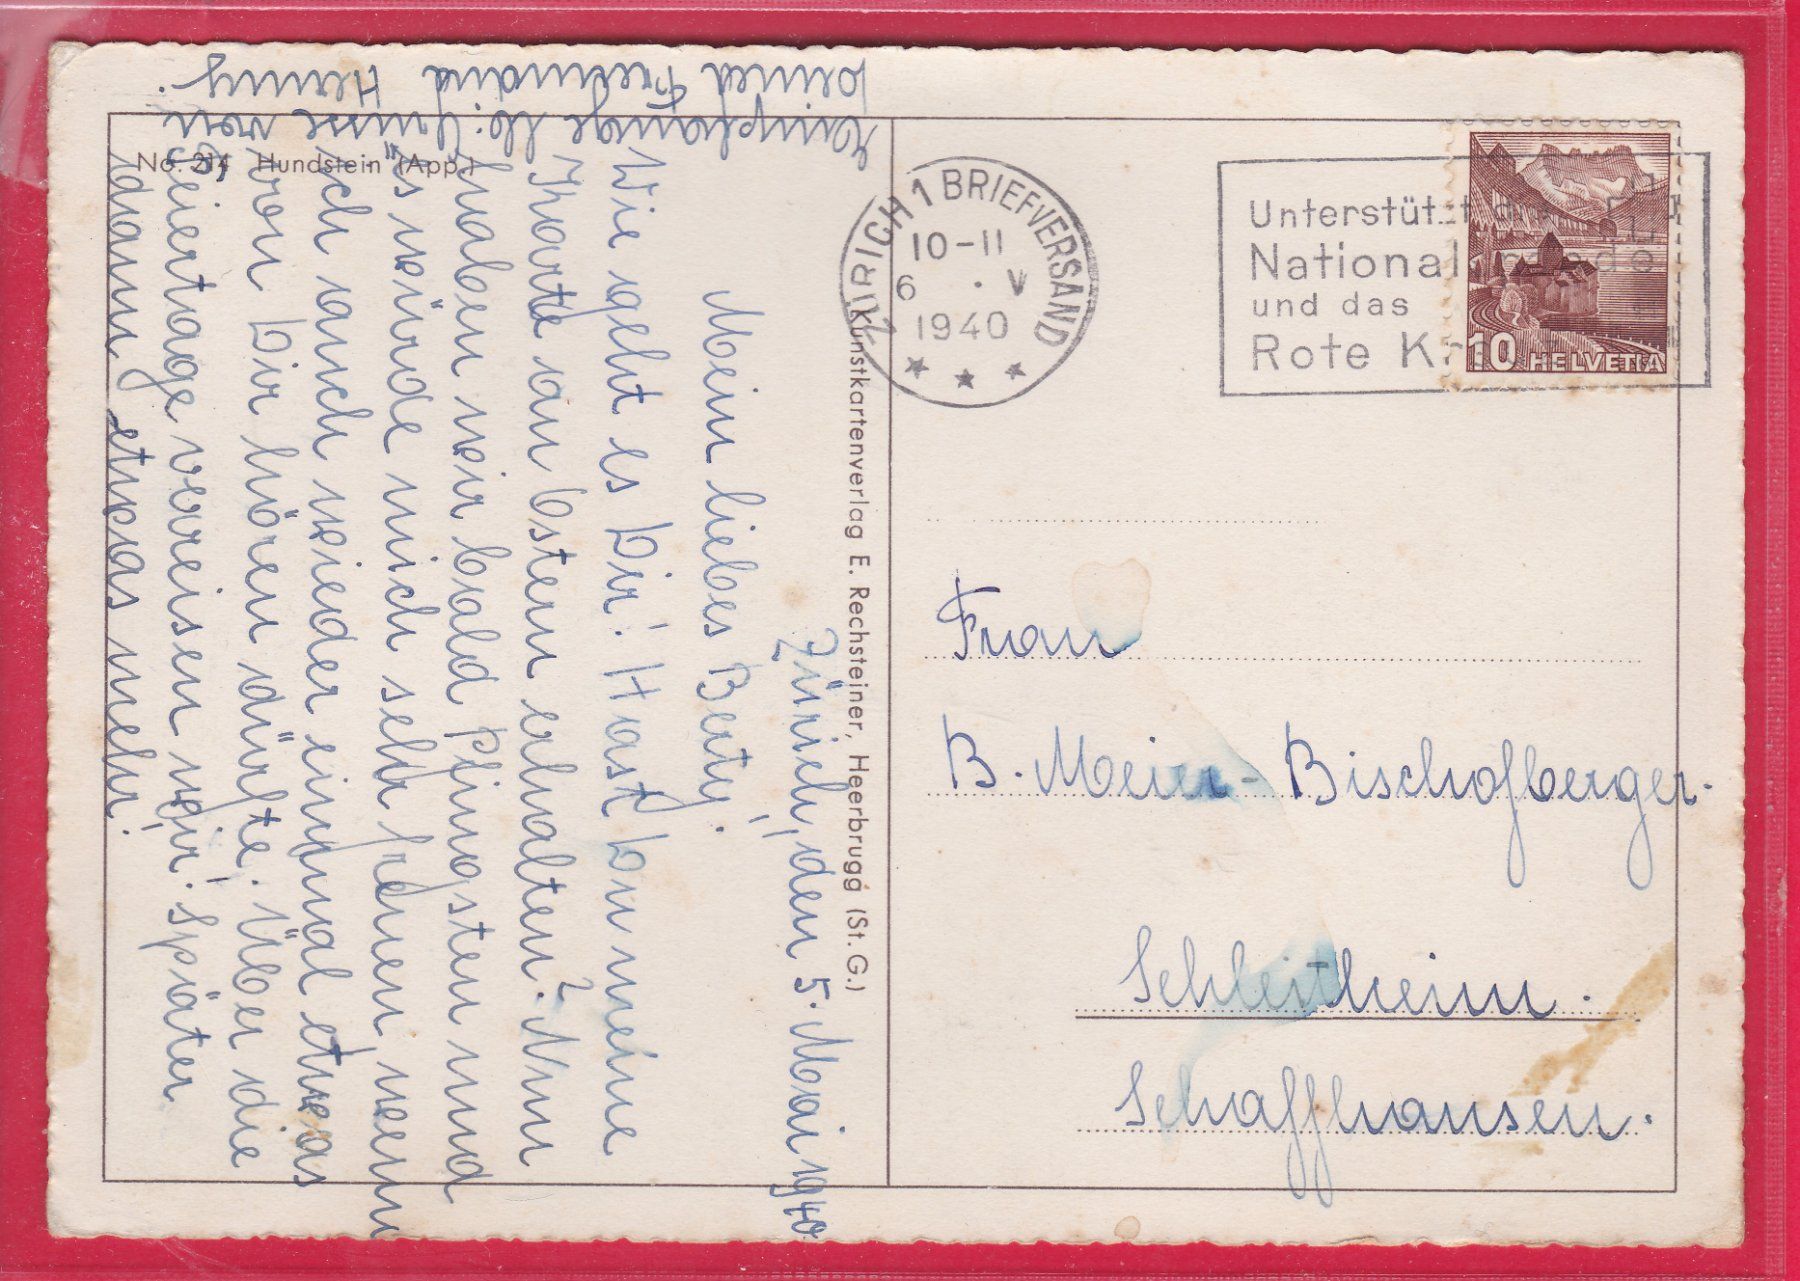 No. 214 "Hundstein" (App.)
Zürich, den 5. Mai 1940.
Mein liebes Berty!
Wie geht es Dir! Hast Du meine
Kharte an Ostern erhalten? Nun
haben wir bald Pfingsten und
es würde mich sehr freuen, wenn
ich auch wieder einmal etwas
von Dir hören dürfte. Über die
Feiertage verreisen wir! Später
dann etwas mehr!
Empfange lb. Grüsse von
Deiner Freundin Henny.
Kunstkartenverlag E. Rechsteiner, Heerbrugg (St. G.)
ZÜRICH 1 BRIEFVERSAND
10-11
6 . V
1940
Unterstützt die
Nationalspende
und das
Rote Kreuz
10 HELVETIA
Frau
B. Meier-Bischofberger.
Schleitheim.
Schaffhausen.